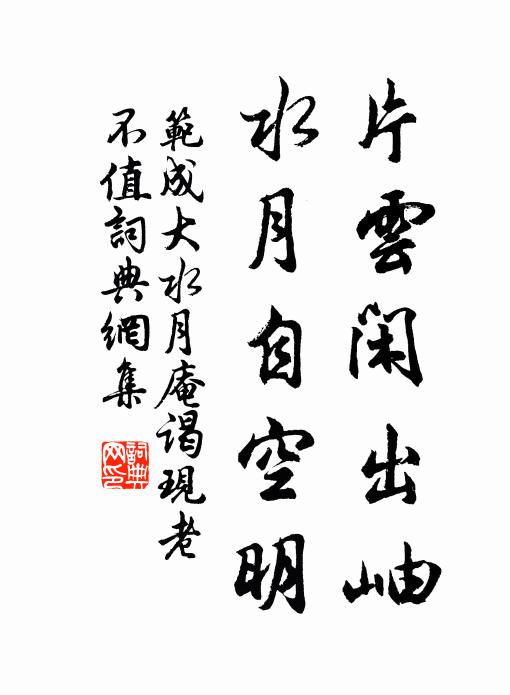 片雲閑出岫
水月自空明
範成大水月庵謁現老
不值詞典網集
詞典網印